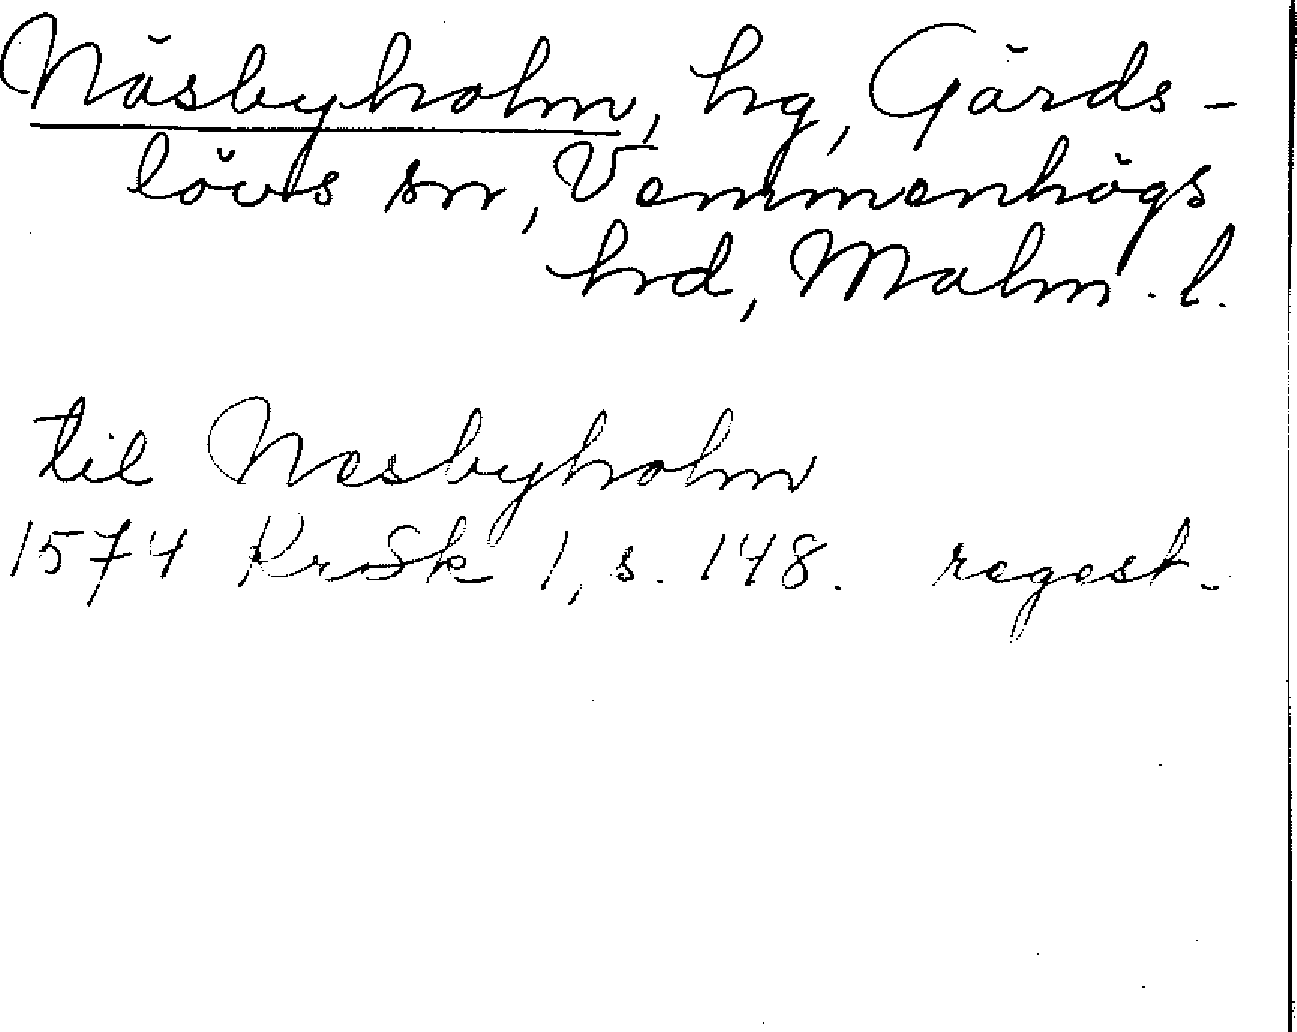 Näsbyholm, hg, Gärds-
lövs sn, Vemmenhögs
hrd, Malm. l.
til Nesbyholm
1574 KrSk 1, s. 148. regest.